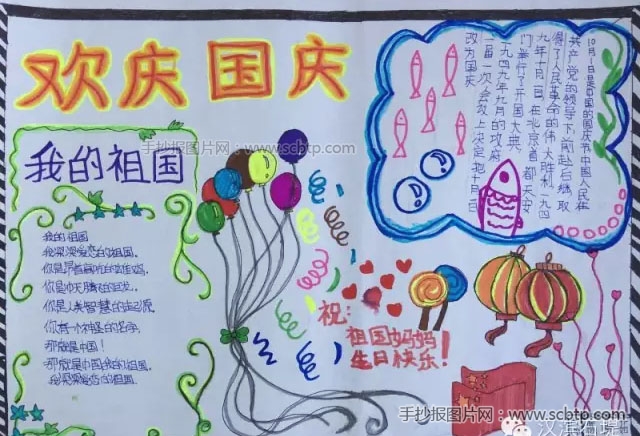 欢庆国庆
手抄报图片网：www.scbtp.com
我的祖国
我的祖国
我深深爱恋的祖国。
你是昂首高吭的雄鸡，
你是冲天腾飞的巨龙，
你是人类智慧的起源
你有一个神圣的名字，
那就是中国！
那就是中国我的祖国，
我深深爱恋的祖国。
10月1日是中国的国庆节中国人民在
共产党的领导下前赴后继取
得了人民革命的伟大胜利一九四
九年十月一日在北京首都天安
门举行了开国大典。
一九四九年九月的政府
一届一次会议上决定把十月一日
改为国庆
祝：
祖国妈妈
生日快乐！
手抄报图片网：www.scbtp.com